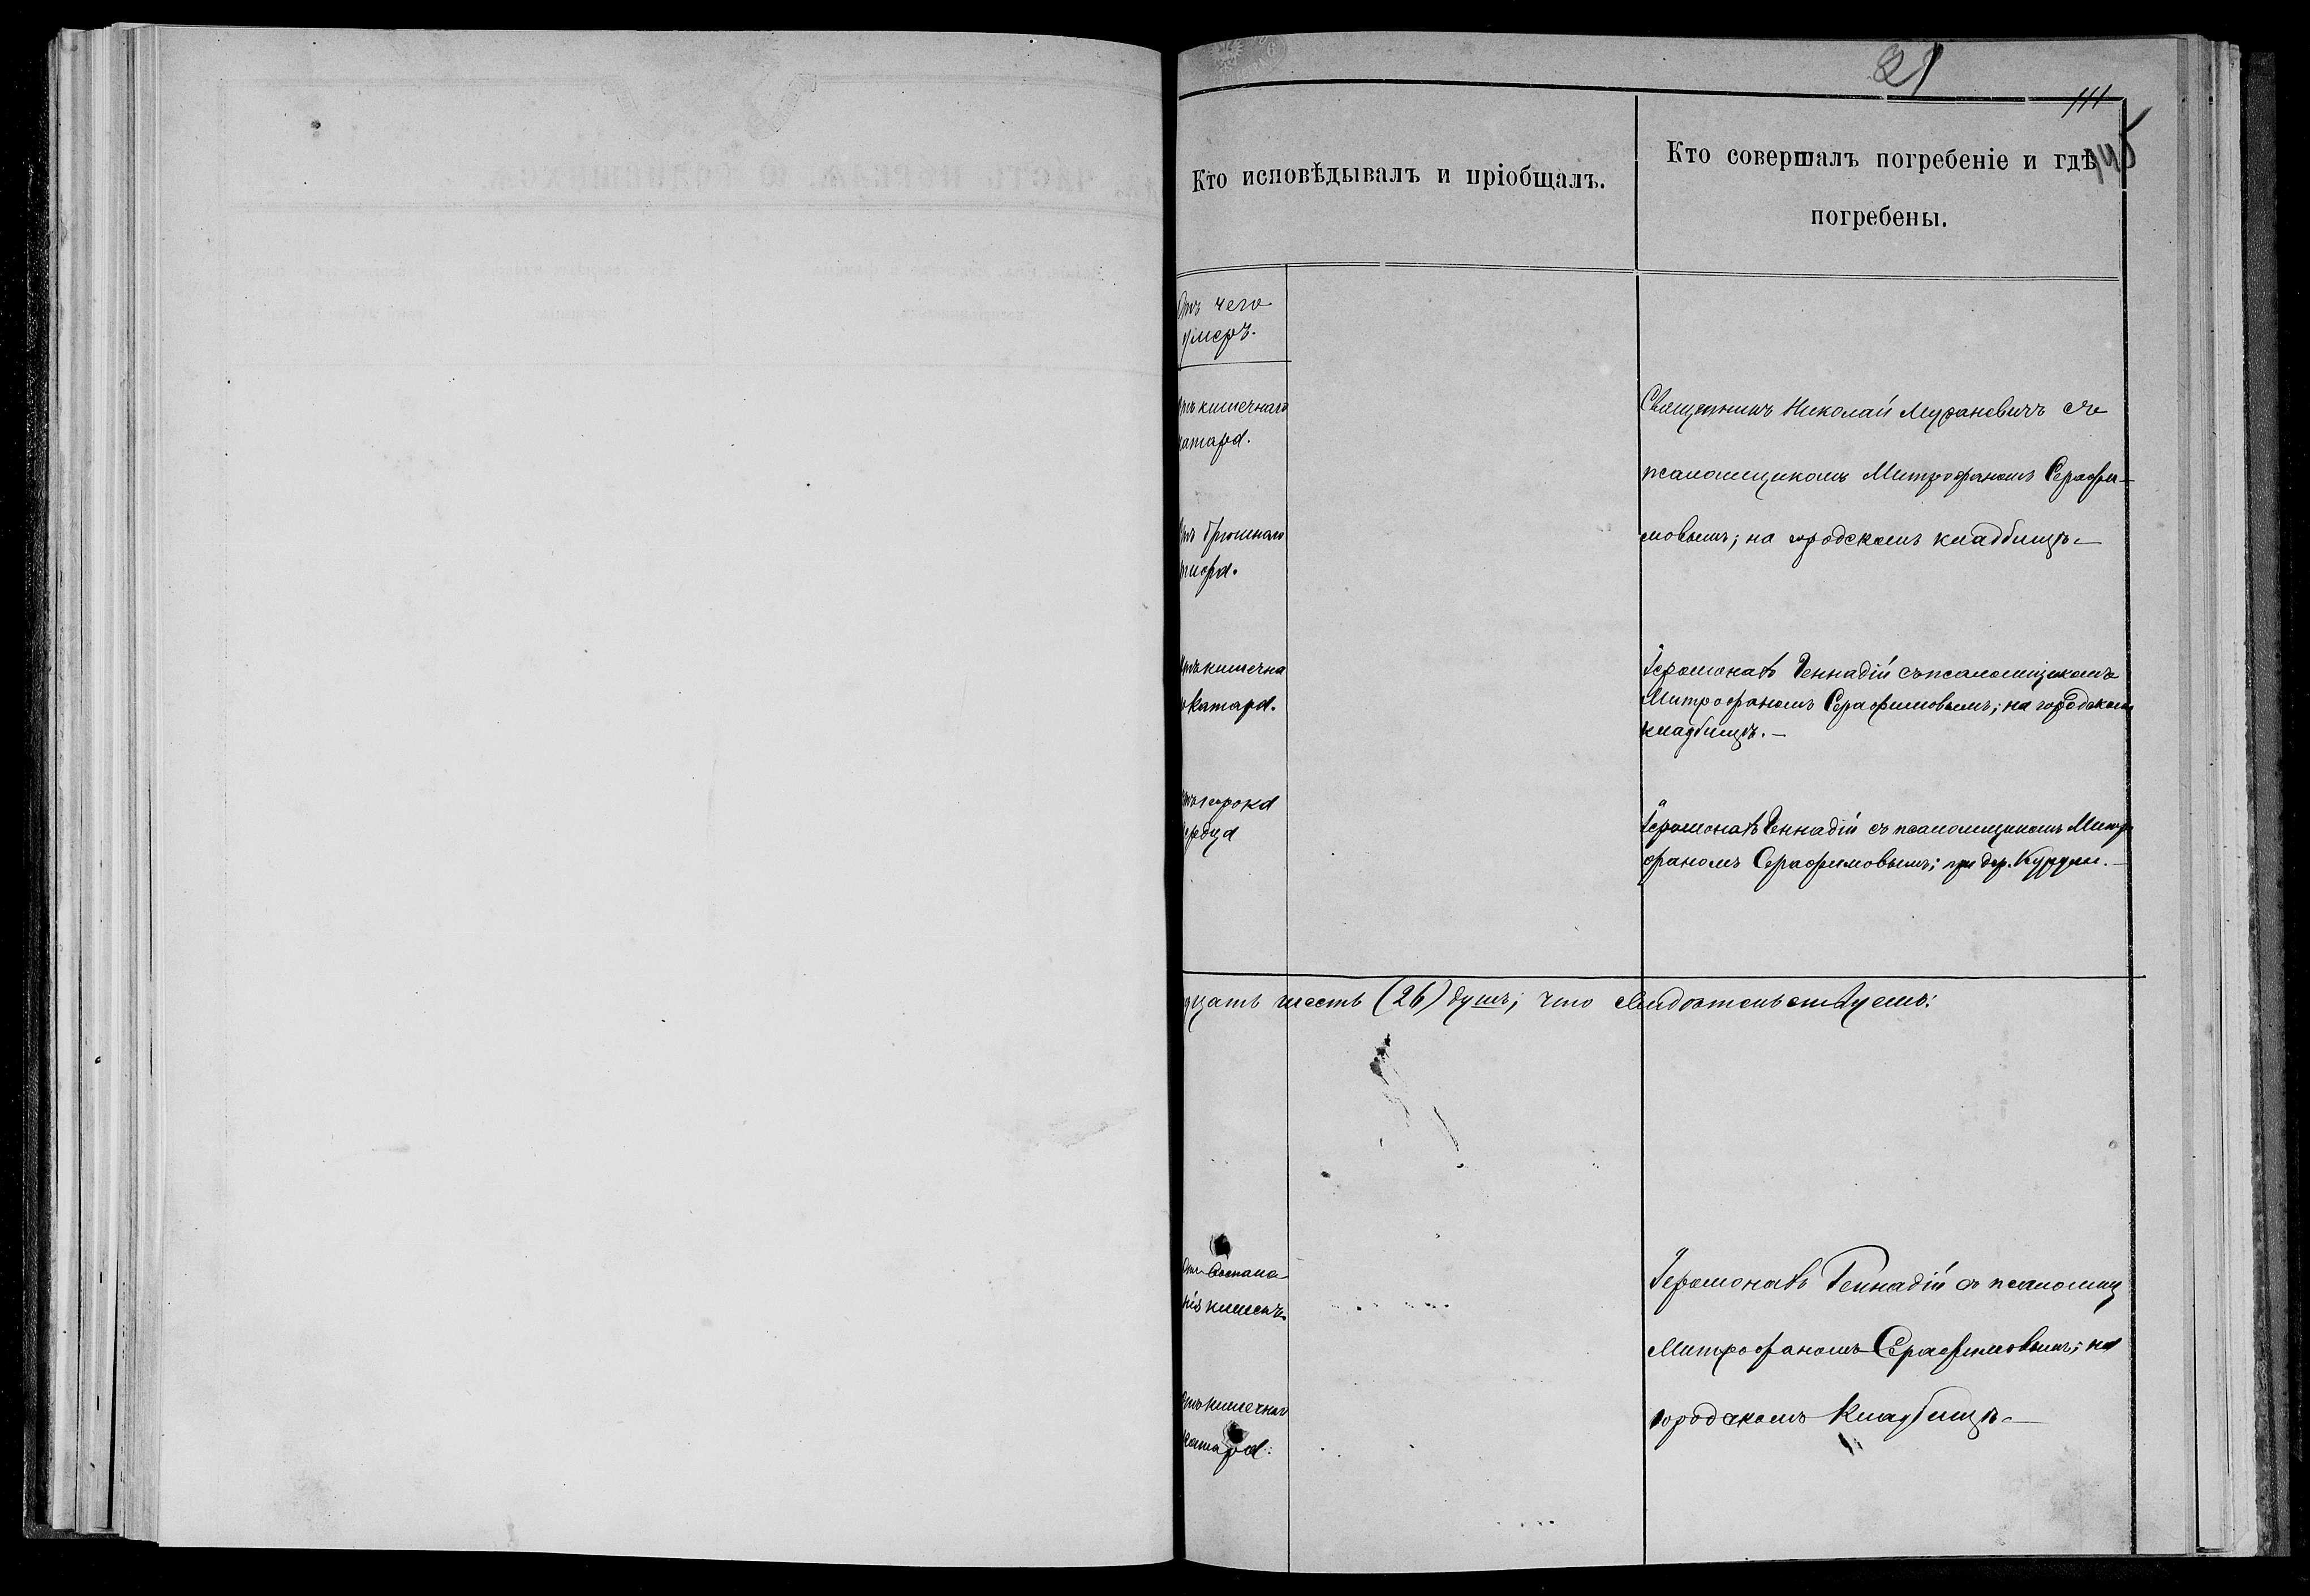 21
111
145
Кто исповѣдывалъ и пріобщалъ.
Кто совершалъ погребеніе и гдѣ
погребены.
Отъ чего
умеръ.
Отъ кишечнаго
катара.
Священникъ Николай съ
псаломщикомъ Митрофаномъ Серафи-
мовымъ; на городскомъ кладбищѣ.—
Отъ брюшнаго
тифа.
Отъ кишечна
го катара.
Іеромонахъ Геннадій съ псаломщикомъ
Митрофаномъ Серафимовымъ; на городскомъ
кладбищѣ.—
Отъ порока
сердца
Іеромонахъ Геннадій съ псаломщикомъ Митро
фаномъ Серафимовымъ; при дер. —
дцать шесть (26) душъ; что свидѣтельствуемъ:
Отъ воспале-
нія кишекъ
Іеромонахъ Геннадій съ псаломщ
Митрофаномъ Серафимовымъ; на
городскомъ кладбищѣ.—
Отъ кишечнаго
катара.